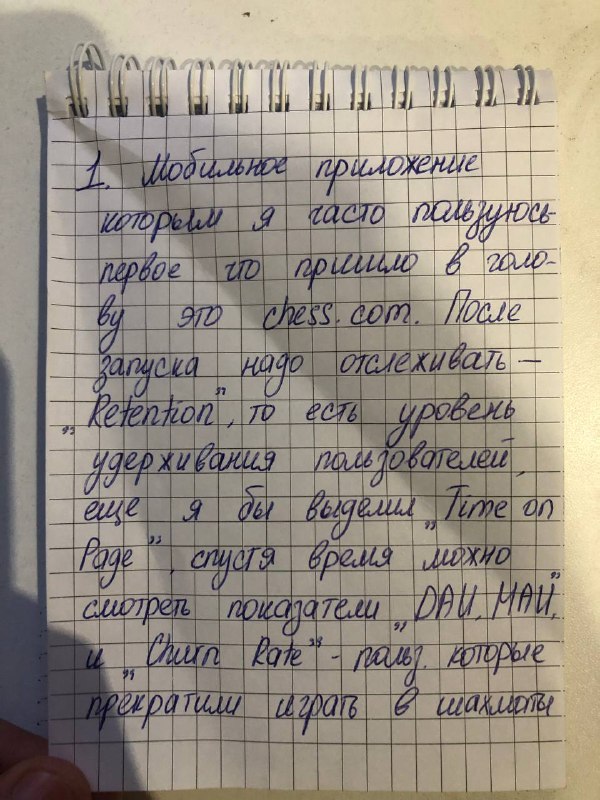 1. Мобильное приложение
которым я часто пользуюсь-
первое что пришло в голо-
ву это chess.com. После
запуска надо отслеживать —
„Retention”, то есть уровень
удерживания пользователей,
еще я бы выделил „Time on
Page”, спустя время можно
смотреть показатели „DAU, MAU”,
и „Churn Rate” - польз. которые
прекратили играть в шахматы